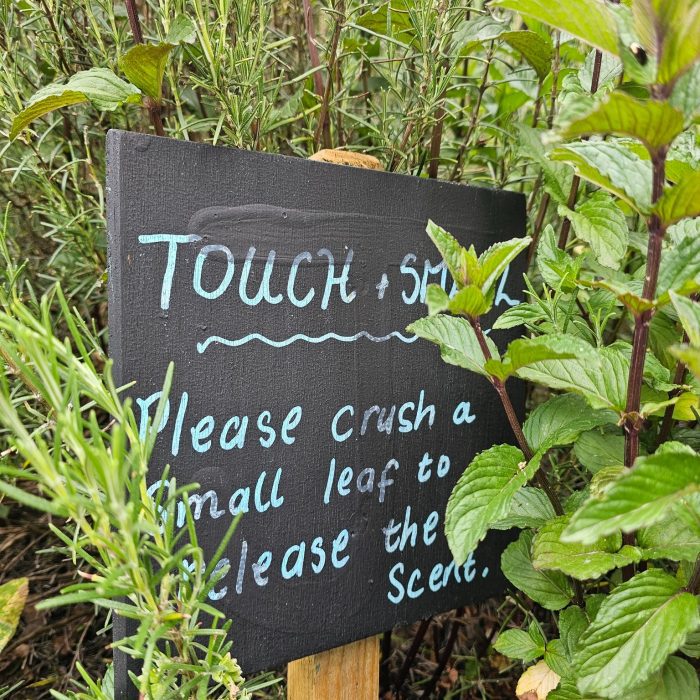 TOUCH + SMELL
Please crush a
Small leaf to
release the
Scent.